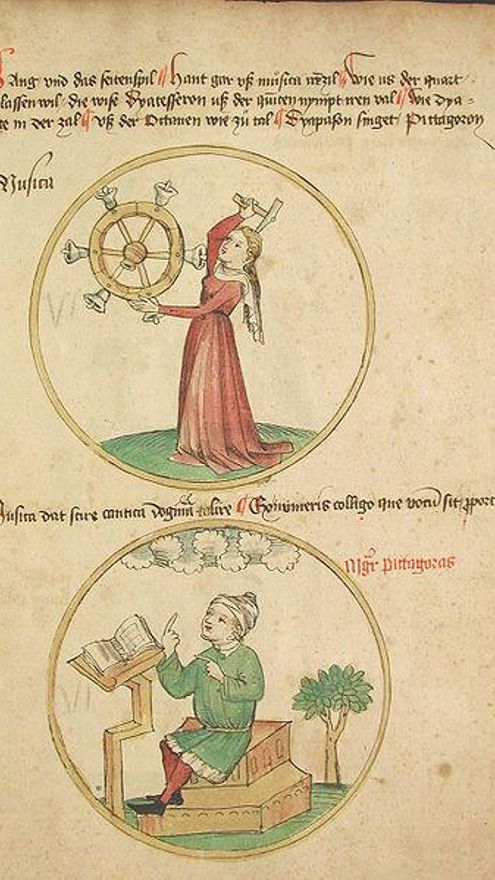 Sang vnd das seitenspil Hant gar vß musica Wie us der quart
lassen wil die wise Dyatesseron uß der quinten nympt iren val Wie dya
te in der zal vß der Octauen wie zu tal Dyapason singet Pittagoron
Musica
Musica dat scire cantica dogma colligo que vocum sit
Mgr Pittagoras